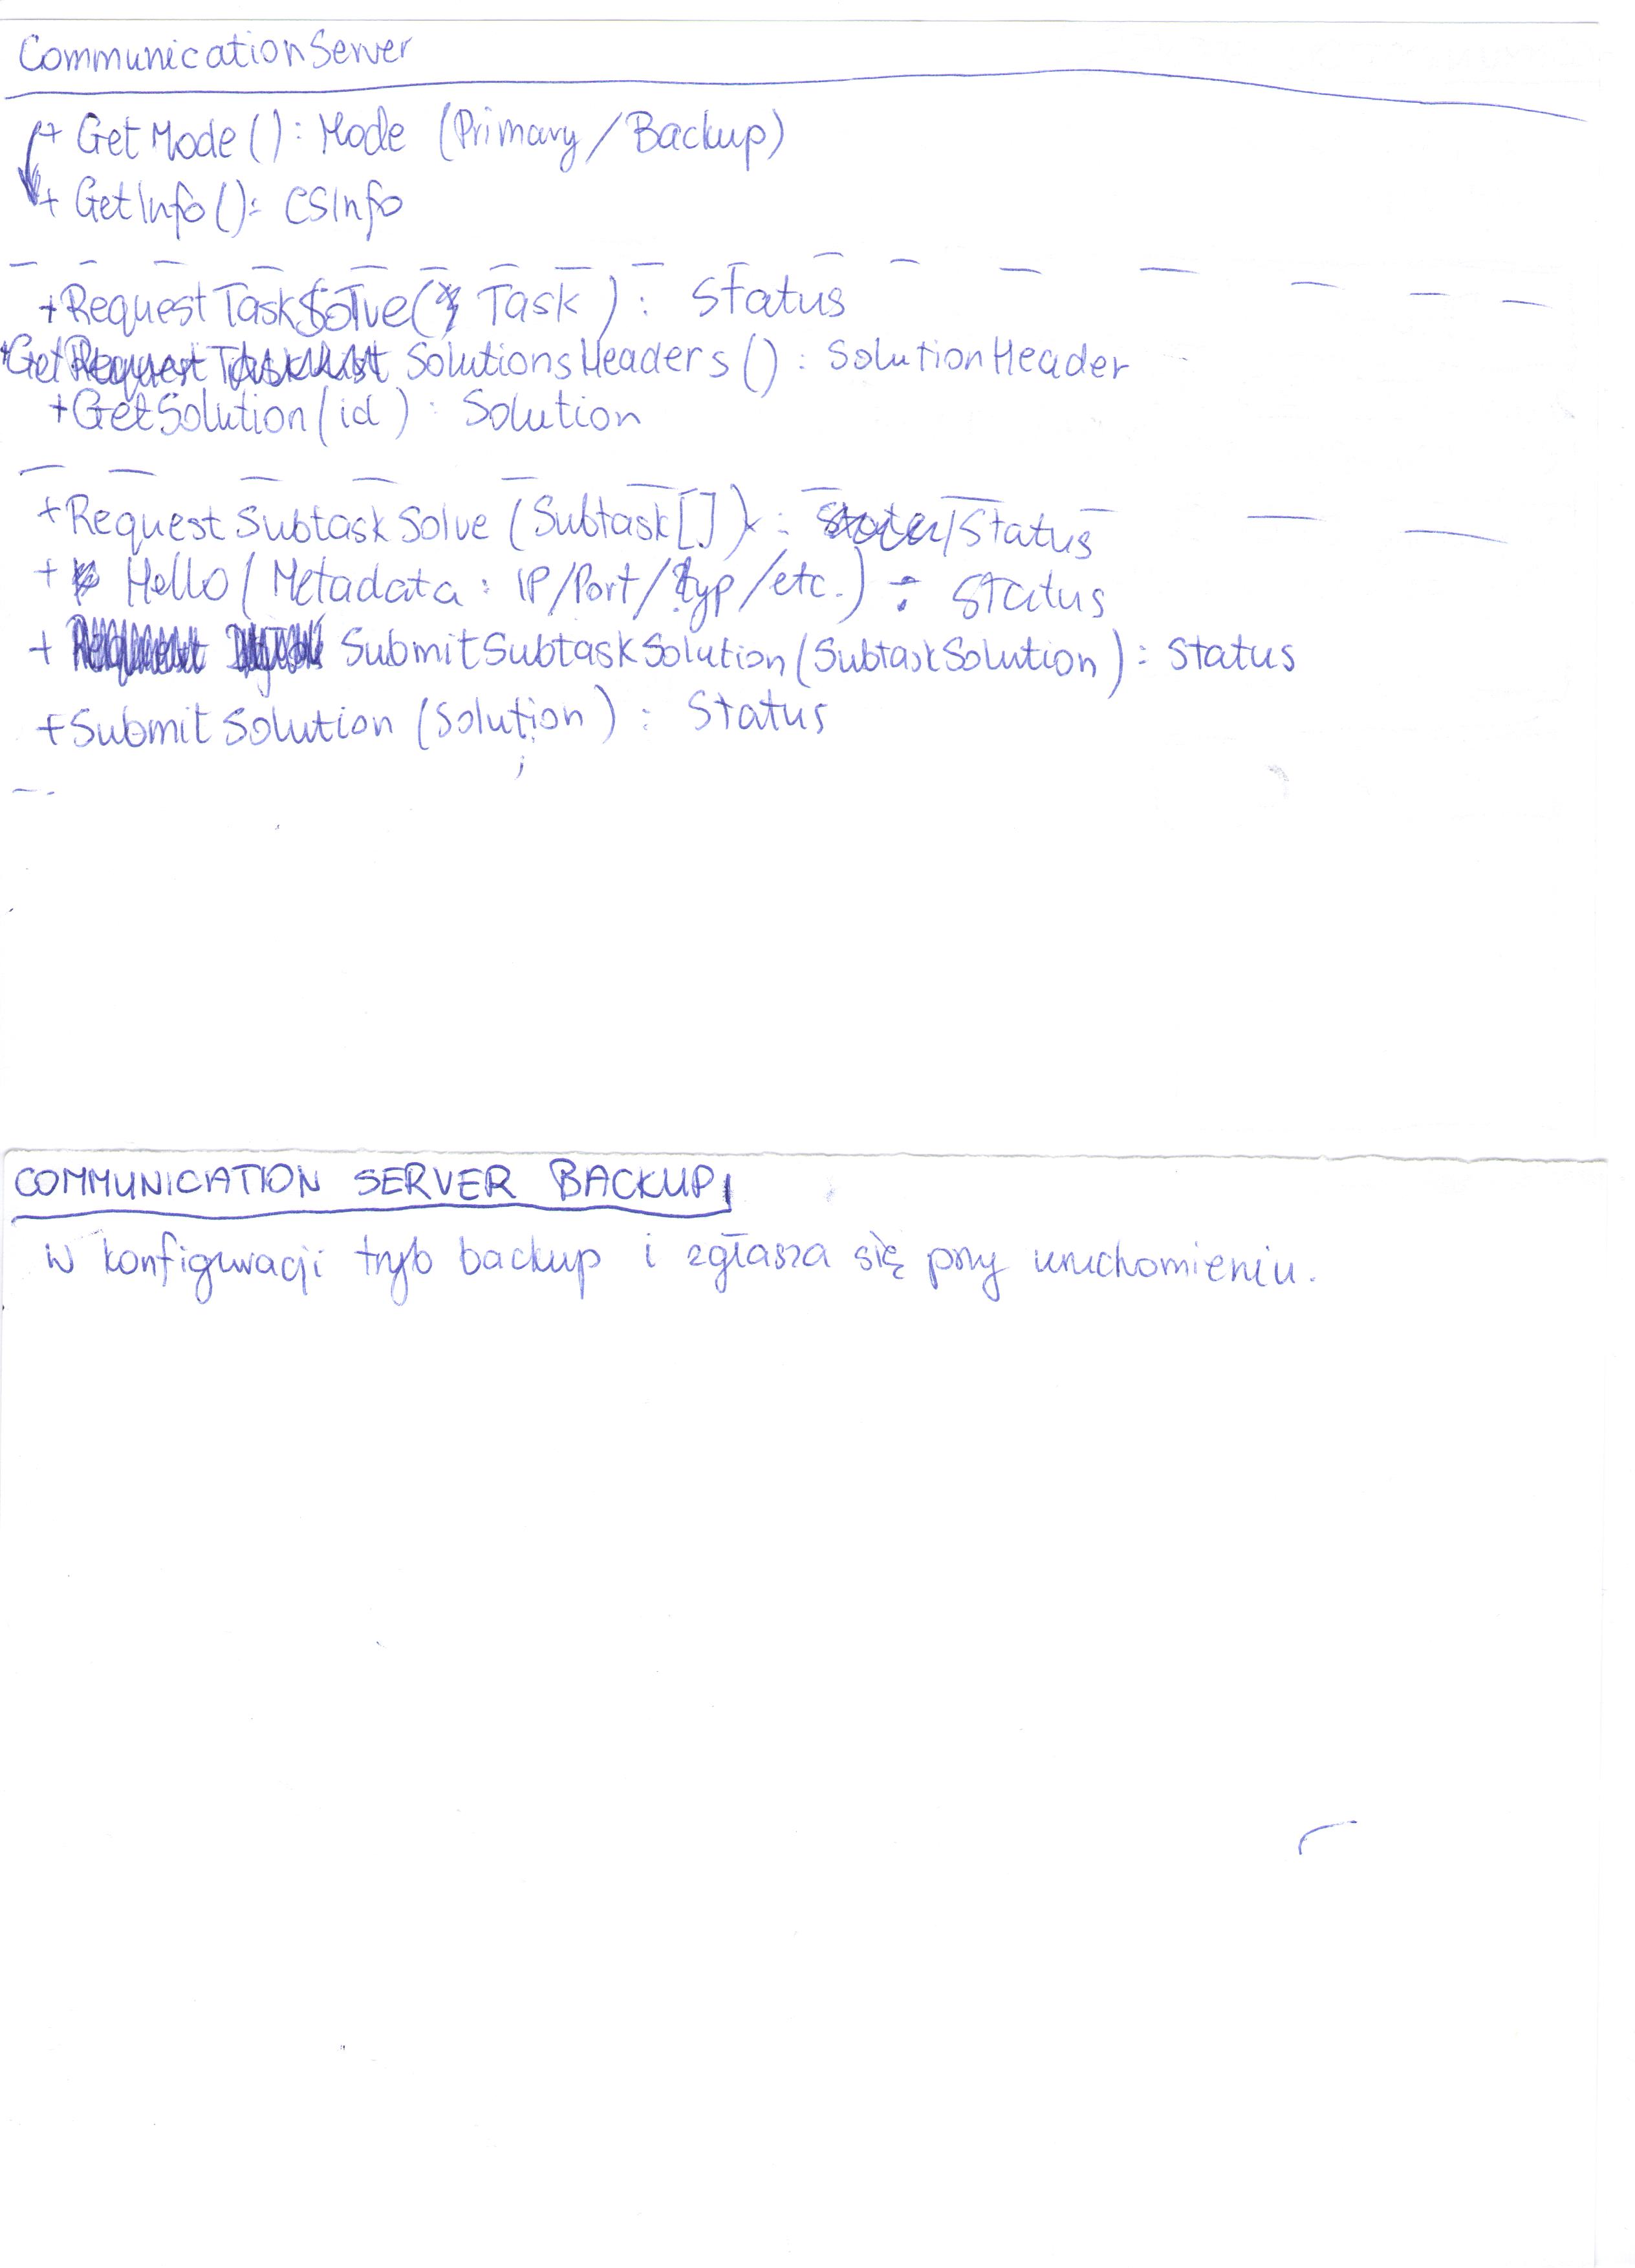 CommunicationServer
+ GetMode(): Mode (Primary/Backup)
+ GetInfo(): CSInfo
+RequestTaskSolve(Task): Status
+Get SolutionsHeaders(): SolutionHeader
+GetSolution(id): Solution
+RequestSubtaskSolve(Subtask[]): Status
+ Hello(Metadata: IP/Port/typ/etc.): Status
+ SubmitSubtaskSolution(SubtaskSolution): Status
+SubmitSolution(Solution): Status
COMMUNICATION SERVER BACKUP
w konfiguracji tryb backup i zgłasza się przy uruchomieniu.